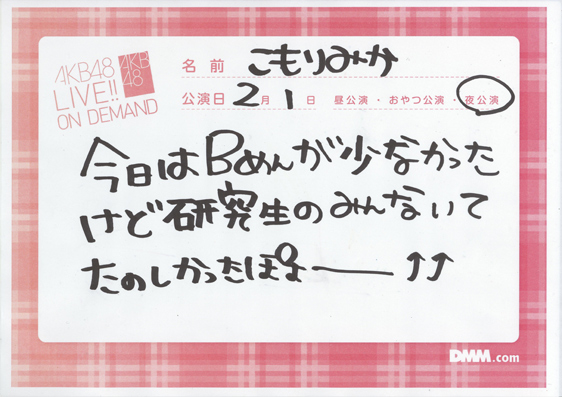 AKB48
LIVE!!
ON DEMAND
AKB
48
名前 こもりみか
公演日 2月 1日 昼公演・おやつ公演・夜公演
今日はBめんが少なかった
けど研究生のみんないて
たのしかったぽよ――↑↑
DMM.com